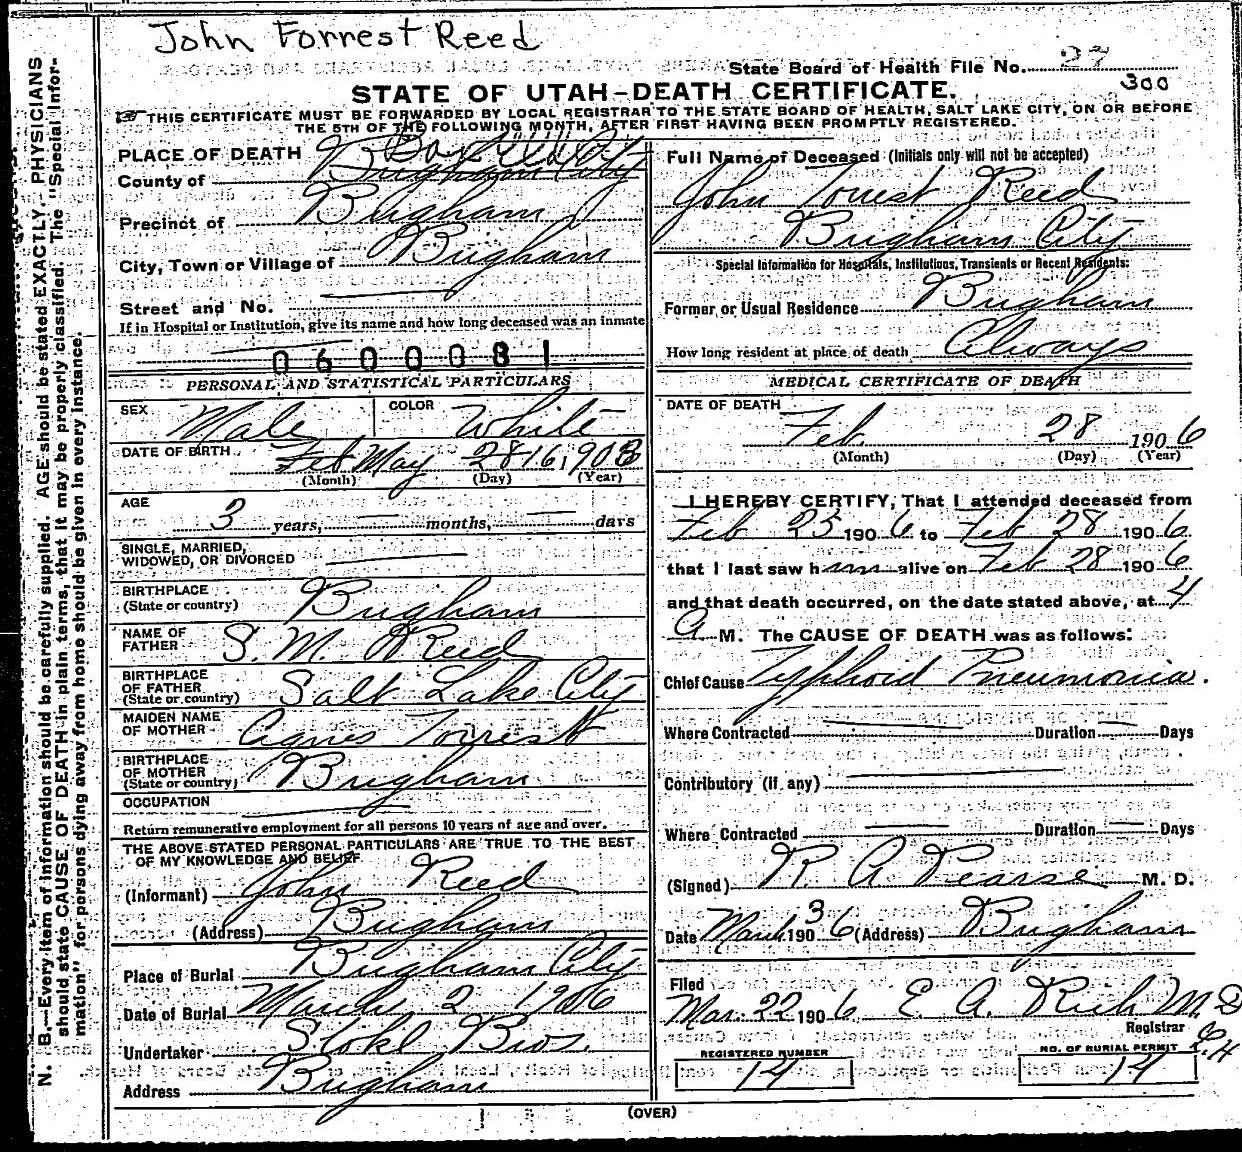 John Forrest Reed
State Board of Health File No. 27
300
STATE OF UTAH-DEATH CERTIFICATE.
THIS CERTIFICATE MUST BE FORWARDED BY LOCAL REGISTRAR TO THE STATE BOARD OF HEALTH, SALT LAKE CITY, ON OR BEFORE
THE 5TH OF THE FOLLOWING MONTH, AFTER FIRST HAVING BEEN PROMPTLY REGISTERED.
PLACE OF DEATH
County of Brigham City
Precinct of Brigham
City, Town or Village of Brigham
Street and No.
If in Hospital or Institution, give its name and how long deceased was an inmate
0600081
PERSONAL AND STATISTICAL PARTICULARS
SEX Male COLOR White
DATE OF BIRTH Feb May 28 16, 1903
(Month) (Day) (Year)
AGE
3 years, months, days
SINGLE, MARRIED,
WIDOWED, OR DIVORCED
BIRTHPLACE
(State or country) Brigham
NAME OF
FATHER S. M. Reed
BIRTHPLACE
OF FATHER
(State or country) Salt Lake City
MAIDEN NAME
OF MOTHER Agnes Forrest
BIRTHPLACE
OF MOTHER
(State or country) Brigham
OCCUPATION
Return remunerative employment for all persons 10 years of age and over.
THE ABOVE STATED PERSONAL PARTICULARS ARE TRUE TO THE BEST
OF MY KNOWLEDGE AND BELIEF
(Informant) John Reed
(Address) Brigham
Place of Burial Brigham City
Date of Burial March 2 1906
Undertaker Stohl Bros.
Address Brigham
Full Name of Deceased (Initials only will not be accepted)
John Forrest Reed
Brigham City
Special Information for Hospitals, Institutions, Transients or Recent Residents:
Former or Usual Residence Brigham
How long resident at place of death Always
MEDICAL CERTIFICATE OF DEATH
DATE OF DEATH
Feb 28 1906
(Month) (Day) (Year)
I HEREBY CERTIFY, That I attended deceased from
Feb 25 1906 to Feb 28 1906
that I last saw him alive on Feb 28 1906
and that death occurred, on the date stated above, at 4
A M. The CAUSE OF DEATH was as follows:
Chief Cause Typhoid Pneumonia.
Where Contracted Duration Days
Contributory (if any)
Where Contracted Duration Days
(Signed) R A Pearse M. D.
Date March 3 1906 (Address) Brigham
Filed
Mar. 22 1906 E. A. Rich M.D
Registrar
REGISTERED NUMBER
14
NO. OF BURIAL PERMIT
14
(OVER)
N. B.—Every item of information should be carefully supplied. AGE should be stated EXACTLY. PHYSICIANS
should state CAUSE OF DEATH in plain terms, that it may be properly classified. The "Special Infor-
mation" for persons dying away from home should be given in every instance.